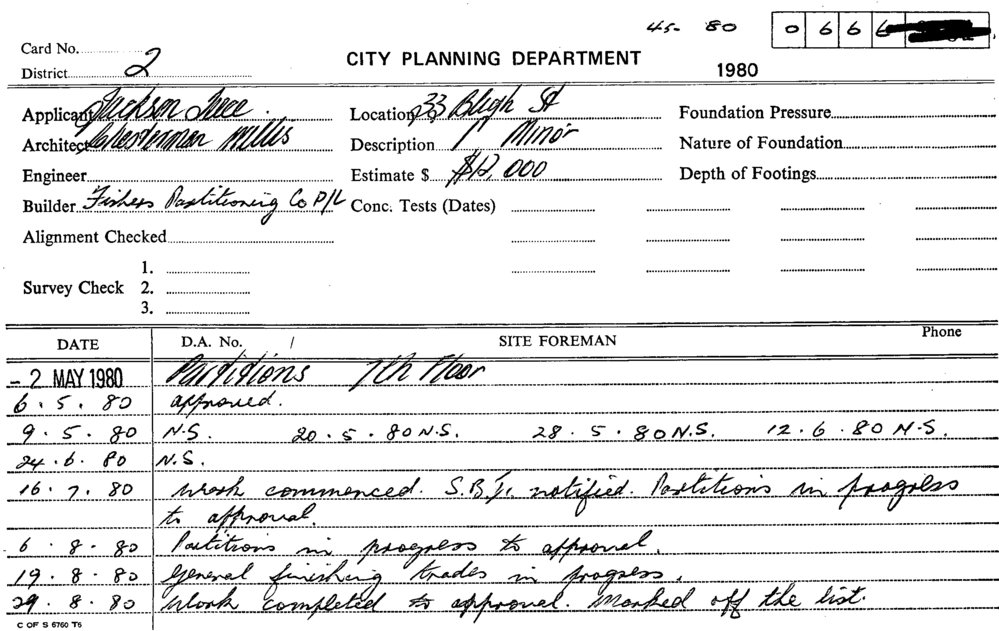 45- 80 0 6 6 6
Card No.
District 2
CITY PLANNING DEPARTMENT
1980
Applicant Jackson Teece. Location 33 Bligh St Foundation Pressure
Architect Chesterman Willis Description Minor Nature of Foundation
Engineer Estimate $ $12,000 Depth of Footings
Builder Fishers Partitioning Co P/L Conc. Tests (Dates)
Alignment Checked
1.
Survey Check 2.
3.
DATE D.A. No. / SITE FOREMAN Phone
- 2 MAY 1980 Partitions 7th Floor
6.5.80 approved.
9.5.80 N.S. 20.5.80 N.S. 28.5.80 N.S. 12.6.80 N.S.
24.6.80 N.S.
16.7.80 Work commenced. notified. Partitions in progress
to approval.
6.8.80 Partitions in progress to approval.
19.8.80 General finishing trades in progress.
29.8.80 Work completed to approval. Marked off the list.
C OF S 6760 T6